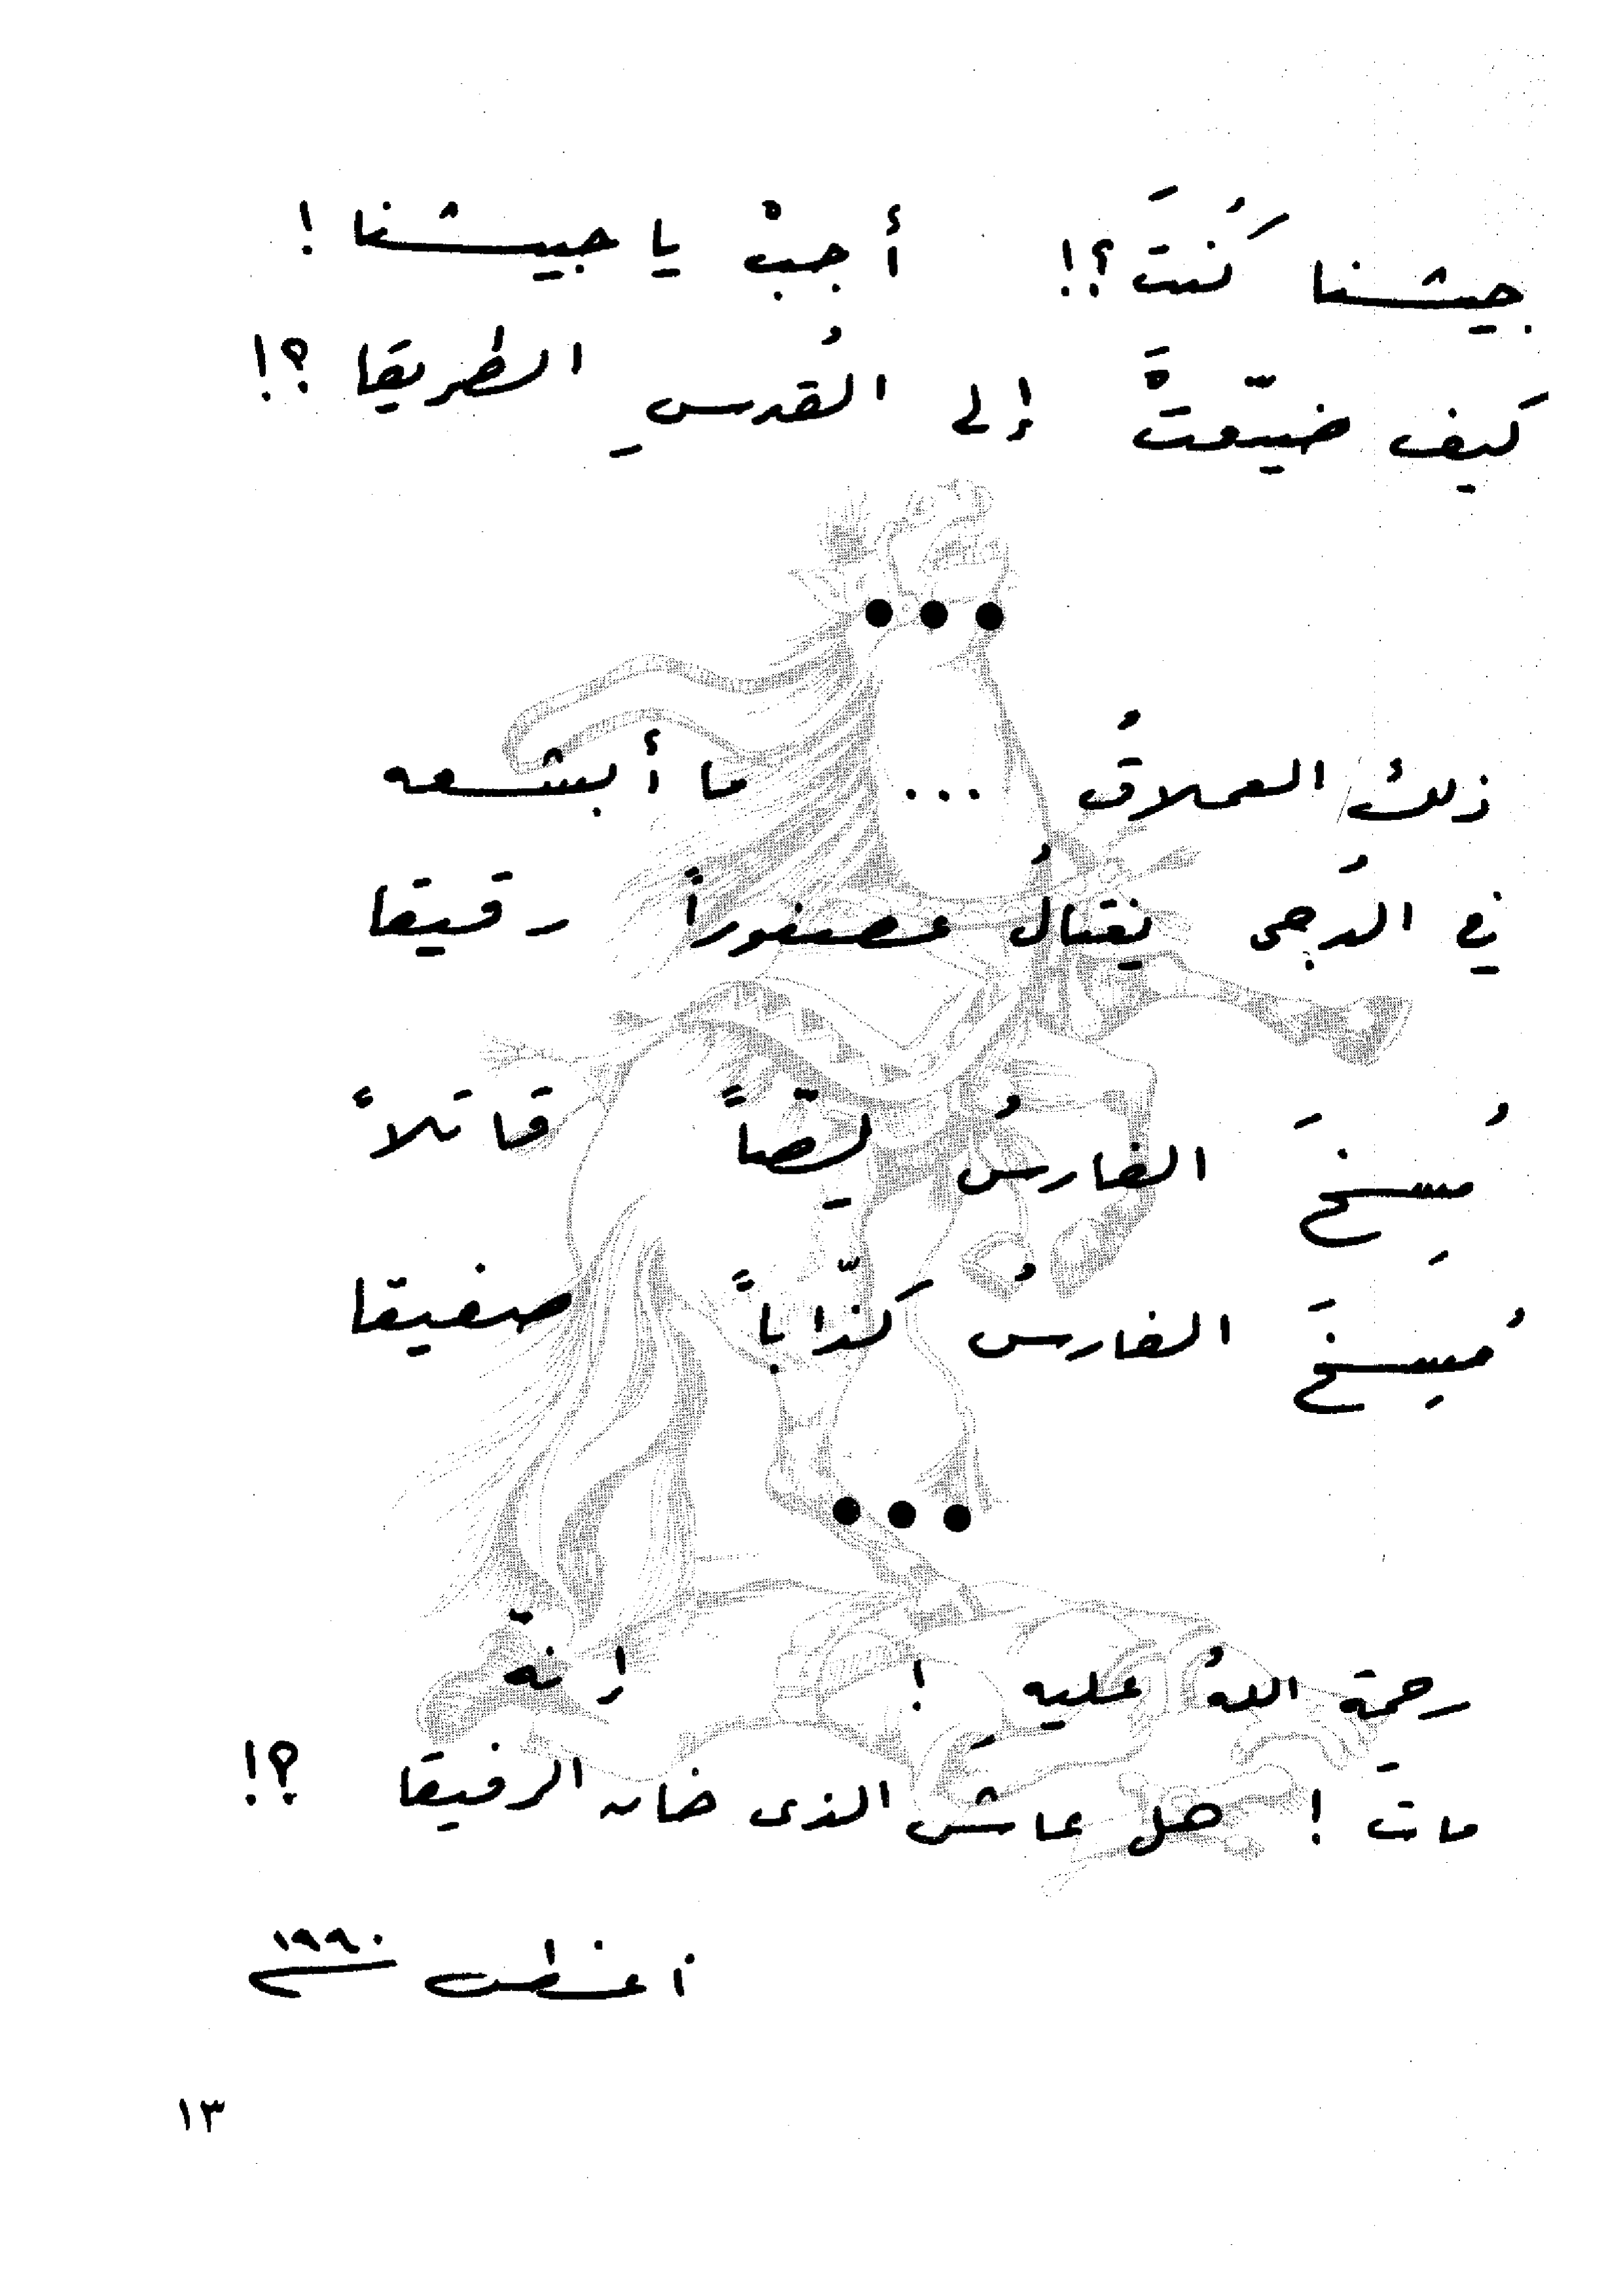 جيشنا كُنتَ؟! أجبْ يا جيشنا!
كيف ضيّعتَ إلى القُدسِ الطريقا؟!
•••
ذلك العملاقُ ... ما أبشعه
في الدُجى يغتالُ عصفوراً رقيقا
مُسِخَ الفارسُ لِصّاً قاتلاً
مُسِخَ الفارسُ كذّاباً صفيقا
•••
رحمةُ اللهِ عليهِ! إنهّ
مات! هل عاش الذى خان الرفيقا؟!
أغسطس ١٩٩٠
١٣